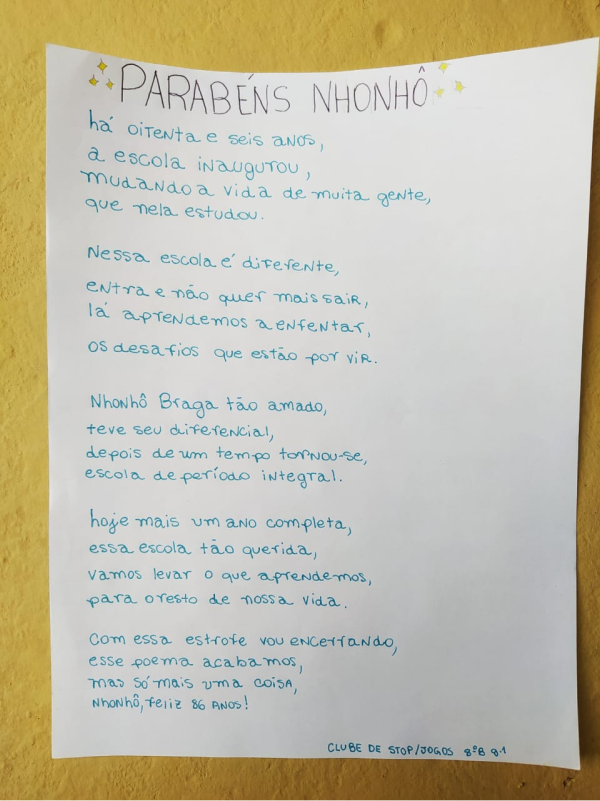 PARABÉNS NHONHÔ
há oitenta e seis anos,
a escola inaugurou,
mudando a vida de muita gente,
que nela estudou.
Nessa escola é diferente,
entra e não quer mais sair,
lá aprendemos a enfentar,
os desafios que estão por vir.
Nhonhô Braga tão amado,
teve seu diferencial,
depois de um tempo tornou-se,
escola de período integral.
hoje mais um ano completa,
essa escola tão querida,
vamos levar o que aprendemos,
para o resto de nossa vida.
Com essa estrofe vou encerrando,
esse poema acabamos,
mas só mais uma coisa,
Nhonhô, feliz 86 anos!
CLUBE DE STOP/JOGOS 8ºB 9.1